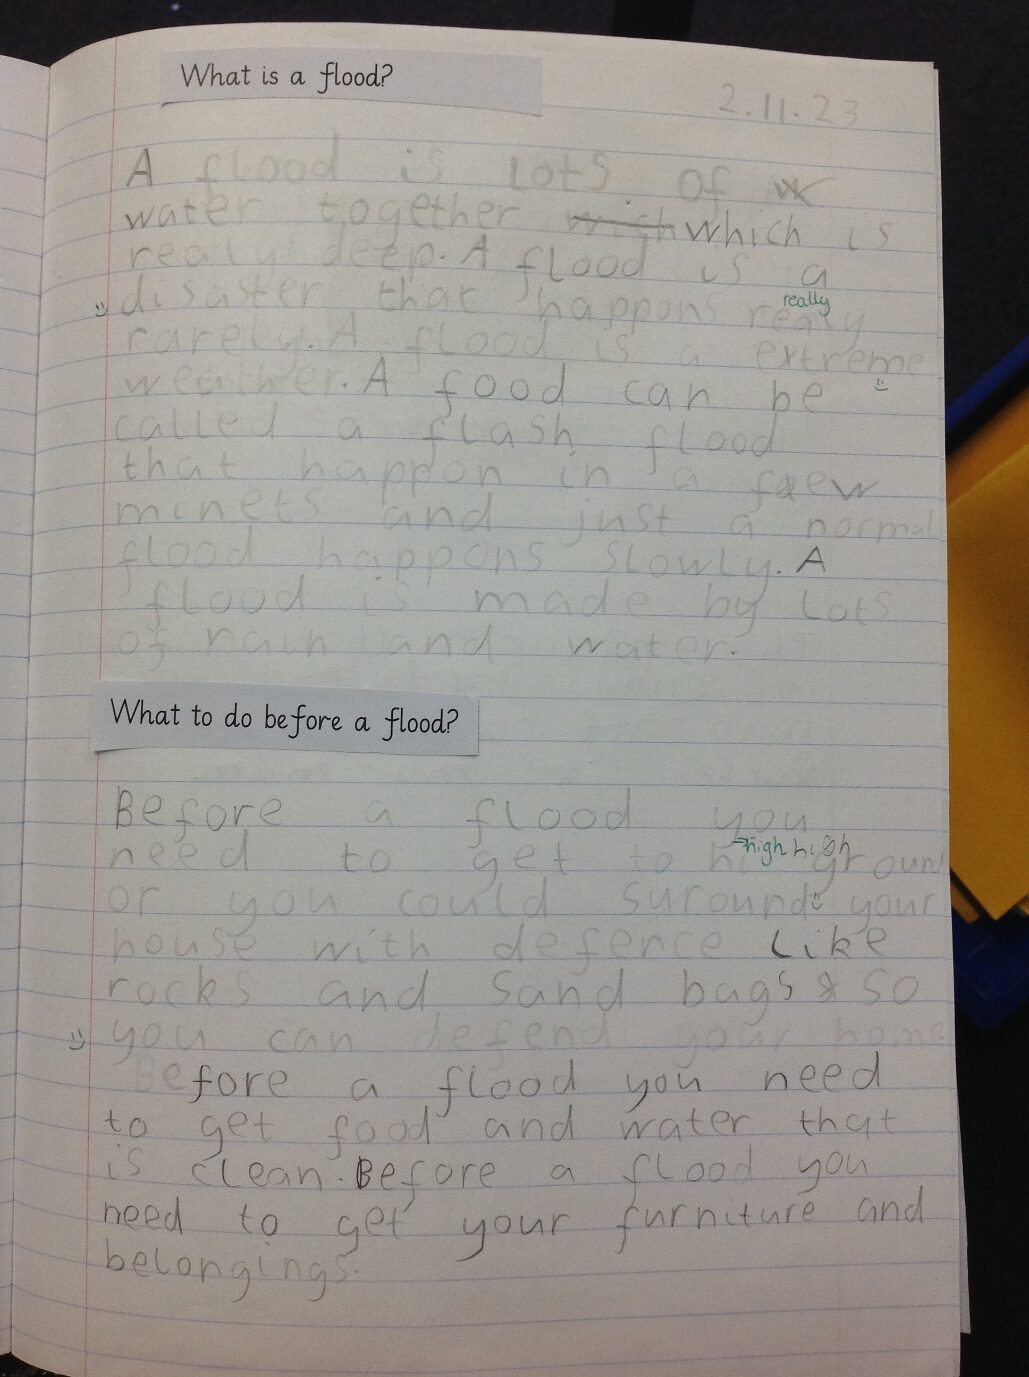 What is a flood?
2.11.23
A flood is lots of w
water together wich which is
realy deep. A flood is a
disaster that happons realy really
rarely. A flood is a extreme
weather. A food can be
called a flash flood
that happon in a few
minets and just a normal
flood happons slowly. A
flood is made by lots
of rain and water.
What to do before a flood?
Before a flood you
need to get to hi high high groun
or you could suround your
house with defence like
rocks and sand bags so
you can defend your home
Before a flood you need
to get food and water that
is clean. Before a flood you
need to get your furniture and
belongings.